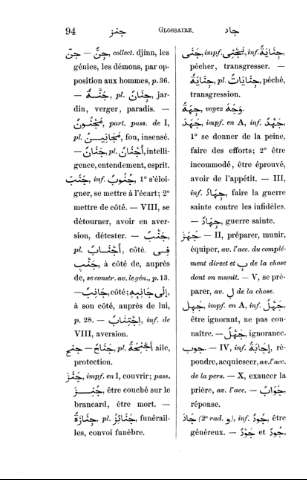 94 جنز GLOSSAIRE. جاد
جن — جِنٌّ collect. djinn, les
génies, les démons, par op-
position aux hommes, p. 36.
— جَنَّةٌ pl. جِنَانٌ, jar-
din, verger, paradis. —
مَجْنُونٌ, part. pass. de I,
pl. مَجَانِينُ, fou, insensé.
— جَنَانٌ, pl. أَجْنَانٌ, intelli-
gence, entendement, esprit.
جَنَبَ, inf. جُنُوبٌ 1° s'éloi-
gner, se mettre à l'écart; 2°
mettre de côté. — VIII, se
détourner, avoir en aver-
sion, détester. — جَنْبٌ
pl. أَجْنَابٌ, côté. فى
جَنْبِ, à côté de, auprès
de, se constr. av. le gén., p. 13.
— جَانِبٌ, côté; إِلَى جَانِبِهِ
à son côté, auprès de lui,
p. 28. — اِجْتِنَابٌ, inf. de
VIII, aversion.
جنح — جَنَاحٌ pl. أَجْنِحَةٌ aile,
protection.
جَنَزَ, impf. en I, couvrir; pass.
جُنِزَ être couché sur le
brancard, être mort. —
جِنَازَةٌ pl. جَنَائِزُ, funérail-
les, convoi funèbre.
جَنَى, impf. يَجْنِى, inf. جِنَايَةٌ
pécher, transgresser. —
جِنَايَةٌ, pl. جِنَايَاتٌ, péché,
transgression.
جِهَةٌ, voyez وِجْهَةٌ
جَهَدَ, impf. en A, inf. جَهْدٌ
1° se donner de la peine,
faire des efforts; 2° être
incoumodé, être éprouvé,
avoir de l'appétit. — III,
inf. جِهَادٌ, faire la guerre
sainte contre les infidèles.
— جِهَادٌ, guerre sainte.
جهز — II, préparer, munir,
équiper, av. l'acc. du complé-
ment direct et ب de la chose
dont on munit. — V, se pré-
parer, av. ل de la chose.
جَهِلَ impf. en A, inf. جَهْلٌ
être ignorant, ne pas con-
naître. — جَهْلٌ, ignorance.
جوب — IV, inf. إِجَابَةٌ, ré-
pondre, acquiescer, av. l'acc.
de la pers. — X, exaucer la
prière, av. l'acc. — جَوَابٌ
réponse.
جَادَ (2° rad. و), inf. جُودٌ être
généreux. — جُودٌ et جَوْدٌ